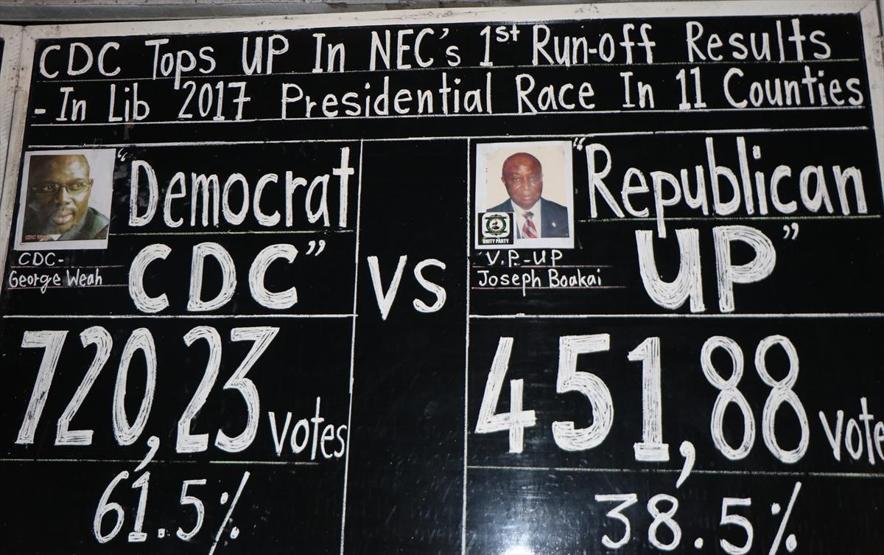 CDC Tops UP In NEC's 1st Run-off Results
- In Lib 2017 Presidential Race In 11 Counties
"Democrat
CDC"
CDC-
George Weah
VS
"Republican
UP"
UNITY PARTY
V.P.-UP
Joseph Boakai
720,23 Votes
61.5%
451,88 Vote
38.5%